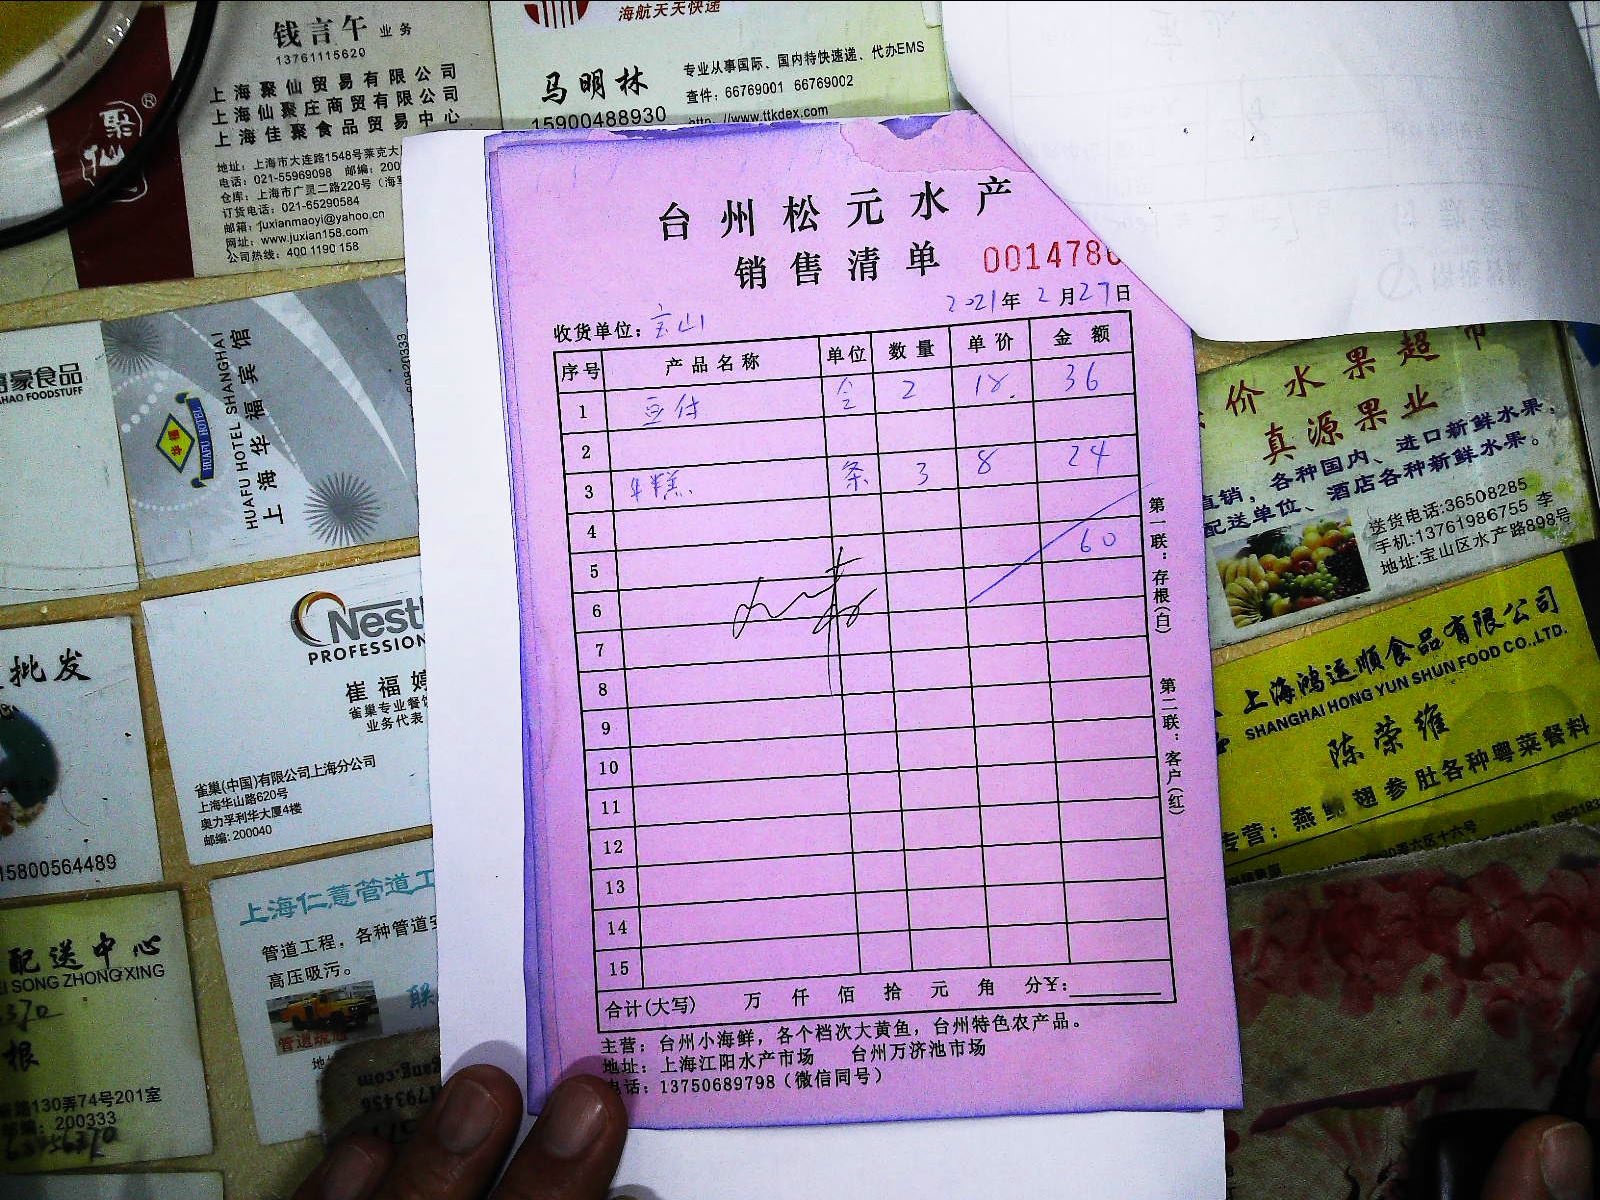 钱言午 业务
13761115620
上海聚仙贸易有限公司
上海仙聚庄商贸有限公司
上海佳聚食品贸易中心
地址：上海市大连路1548号莱克大
电话：021-55969098 邮编：200
仓库：上海市广灵二路220号（海军
订货电话：021-65290584
邮箱：juxianmaoyi@yahoo.cn
网址：www.juxian158.com
公司热线：400 1190 158
聚仙®
海航天天快递
马明林
15900488930
专业从事国际、国内特快速递、代办EMS
查件：66769001 66769002
http://www.ttkdex.com
台州松元水产
销售清单
0014786
2021年2月27日
收货单位：宝山
序号 产品名称 单位 数量 单价 金额
1 豆付 合 2 18. 36
2
3 年糕 条 3 8 24
4
5 60
6
7
8
9
10
11
12
13
14
15
合计(大写) 万 仟 佰 拾 元 角 分¥：
主营：台州小海鲜，各个档次大黄鱼，台州特色农产品。
地址：上海江阳水产市场 台州万济池市场
电话：13750689798（微信同号）
第一联：存根(白)
第二联：客户(红)
豪食品
AHAO FOODSTUFF
HUAFU HOTEL SHANGHAI
上海华福宾馆
华福
HUAFU HOTEL
Nestl
PROFESSION
崔福婷
雀巢专业餐饮
业务代表
雀巢(中国)有限公司上海分公司
上海华山路620号
奥力孚利华大厦4楼
邮编: 200040
批发
15800564489
上海仁薏管道工
管道工程，各种管道安
高压吸污。
联
管道疏通
配送中心
EI SONG ZHONG XING
根
路130弄74号201室
邮编：200333
价水果超市
真源果业
直销，各种国内、进口新鲜水果，
配送单位、酒店各种新鲜水果。
送货电话:36508285
手机:13761986755 李
地址:宝山区水产路898号
上海鸿运顺食品有限公司
SHANGHAI HONG YUN SHUN FOOD CO.,LTD.
陈荣维
专营：燕鲍翅参肚各种粤菜餐料